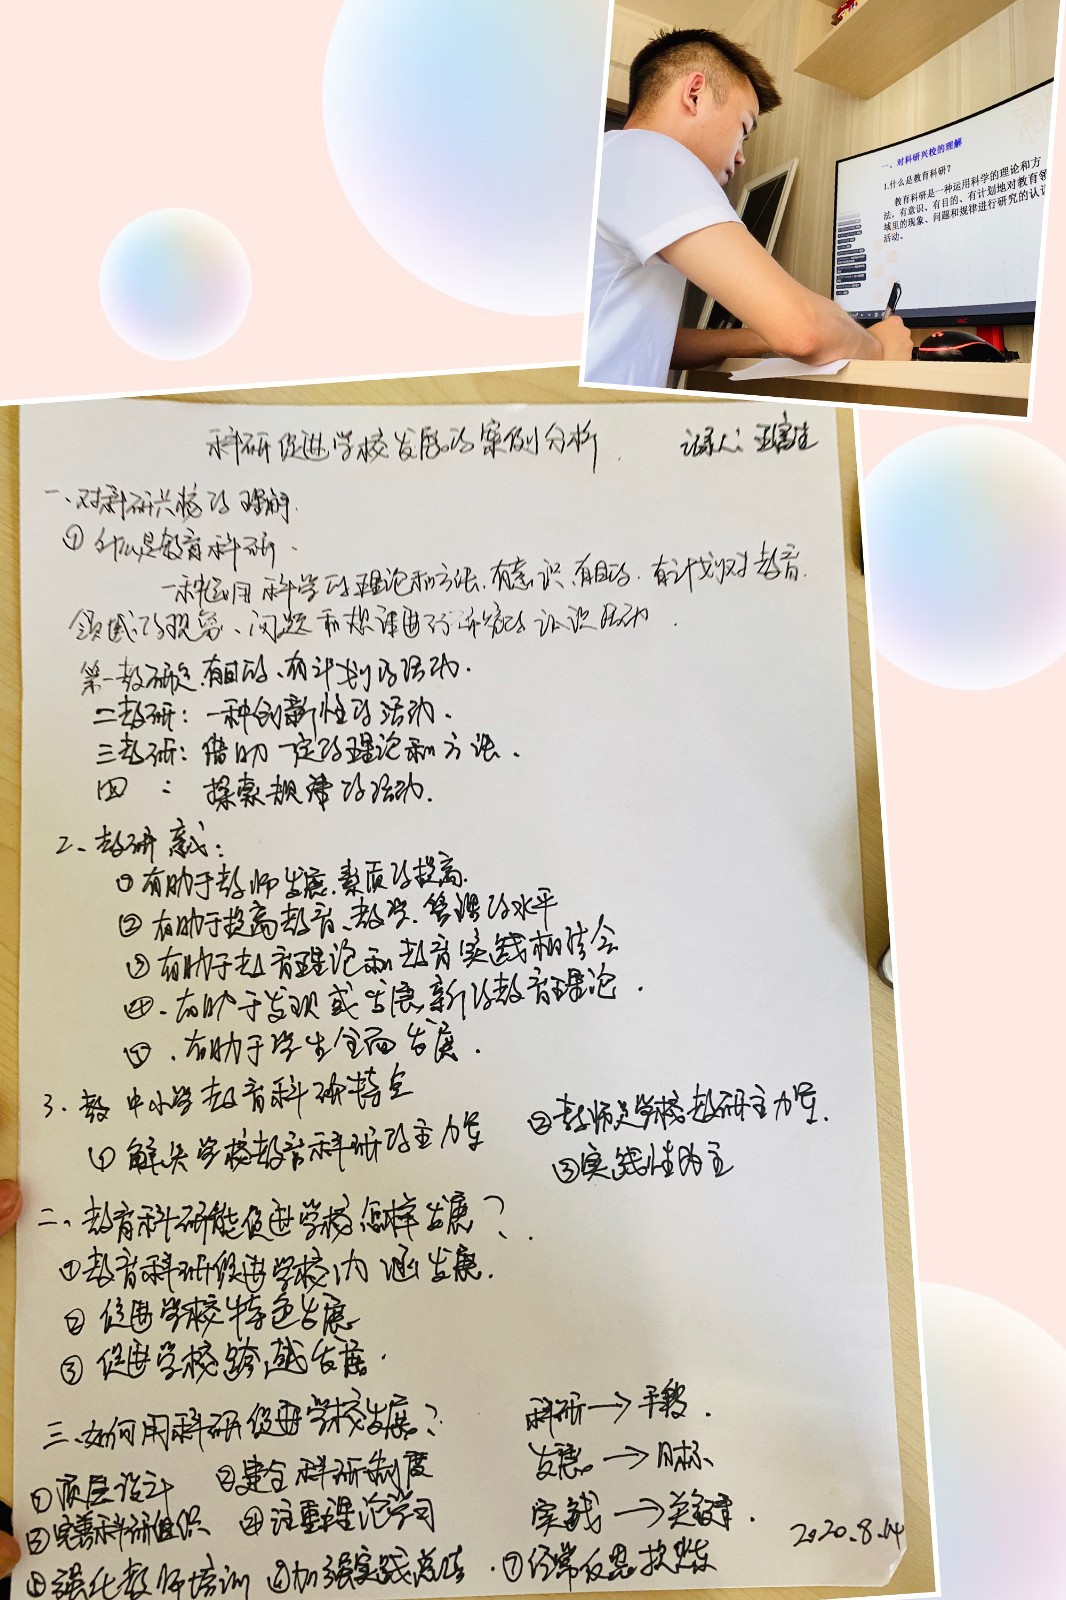 一、对科研兴校的理解
1.什么是教育科研?
教育科研是一种运用科学的理论和方
法，有意识、有目的、有计划地对教育领
域里的现象、问题和规律进行研究的认识
活动。
科研促进学校发展的案例分析 记录人:
一、对科研兴校的理解.
① 什么是教育科研.
一种运用科学的理论和方法、有意识、有目的、有计划对教育
领域的现象、问题和规律进行研究的认识活动.
第一教研是有目的、有计划的活动.
二教研: 一种创新性的活动.
三教研: 借助一定的理论和方法.
四 : 探索规律的活动.
2、教研意义:
① 有助于教师发展.素质的提高.
② 有助于提高教育、教学、管理的水平
③ 有助于教育理论和教育实践相结合
④、有助于发现或发展新的教育理论.
⑤、有助于学生全面发展.
3. 教 中小学教育科研特点
① 解决学校教育科研的主力军 ②教师是学校教研主力军.
③实践性为主
二、教育科研能促进学校怎样发展?
①教育科研促进学校内涵发展.
② 促进学校特色发展
③ 促进学校跨越发展.
三.如何用科研促进学校发展? 科研→手段.
发展→目标
实践→关键.
①顶层设计 ②建全科研制度
③完善科研组织 ④注重理论学习
⑤强化教师培训 ⑥加强实践总结.⑦经常反思提炼
2020.8.14